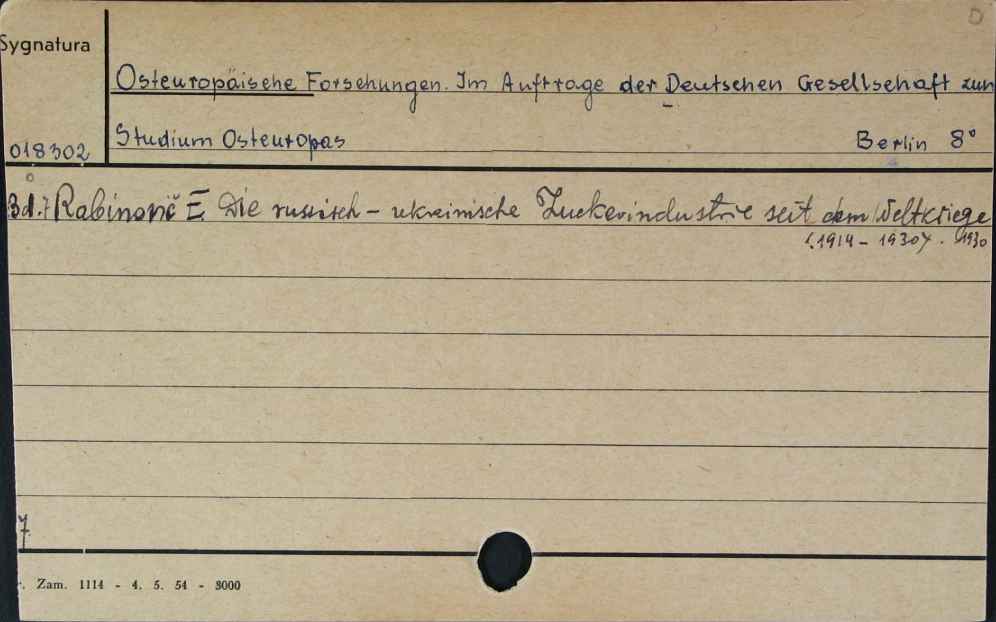 D
Sygnatura
Osteuropäische Forschungen. Im Auftrage der Deutschen Gesellschaft zum
Studium Osteuropas Berlin 8°
018302
Bd.7 Rabinovič E. Die russisch - ukrainische Zuckerindustrie seit dem Weltkriege
(1914 - 1930). 1930
7
r. Zam. 1114 - 4. 5. 54 - 8000